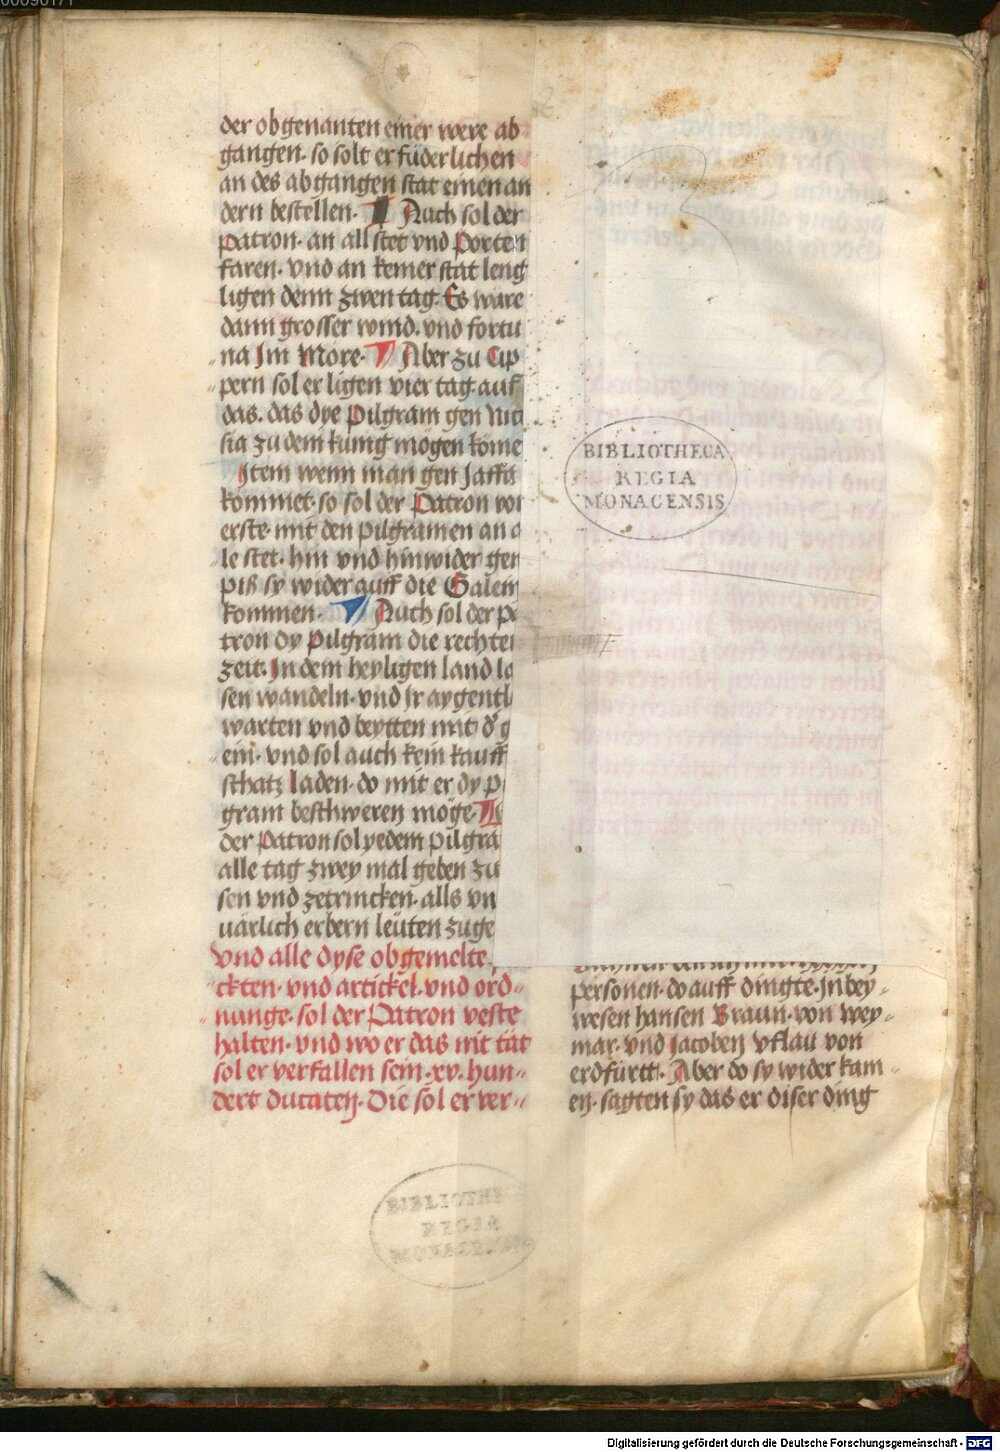 der obgenanten einer were ab
gangen. so solt er füderlichen
an des abgangen stat einen an
dern bestellen. Auch sol der
Patron. an all stet vnd Porten
faren. vnd an keiner stat leng
ligen denn zwen tag. Es wäre
dann grosser wind. vnd fortu
na Im More. Aber zu Cip
pern sol er ligen vier tag. auf
das. das dye Pilgram gen Nico
sia zu dem kunig mogen kome
Item wenn man gen Jaffa
kommet. so sol der Patron vor
erste. mit den pilgramen an
le stet. hin vnd hinwider gen
piß sy wider auff die Galein
kommen. Auch sol der Pa
tron dy Pilgram die rechten
zeit. In dem heyligen land la
sen wandeln. vnd Ir aygentl
warten vnd beytten mit d' g
ein. vnd sol auch kein kauff
schatz laden. do mit er dy p
gram beschweren möge.
der Patron sol yedem pilgra
alle tag zwey mal geben zu
sen vnd zetrincken. alls vn
uärlich erbern leüten zuge
Vnd alle dyse obgemelte.
ckten. vnd artickel. vnd ord-
nunge. sol der Patron veste
halten. vnd wo er das nit tät
sol er verfallen sein. xv. hun-
dert ducaten. Die sol er ver-
personen. do auff dingte. In bey-
wesen hansen Braun. von wey-
mar. vnd Jacoben Vflau von
erdfürtt. Aber do sy wider kam-
en. sagten sy das er diser ding
BIBLIOTHECA
REGIA
MONACENSIS
BIBLIOTHE
REGIA
MONACENSIS
Digitalisierung gefördert durch die Deutsche Forschungsgemeinschaft - DFG